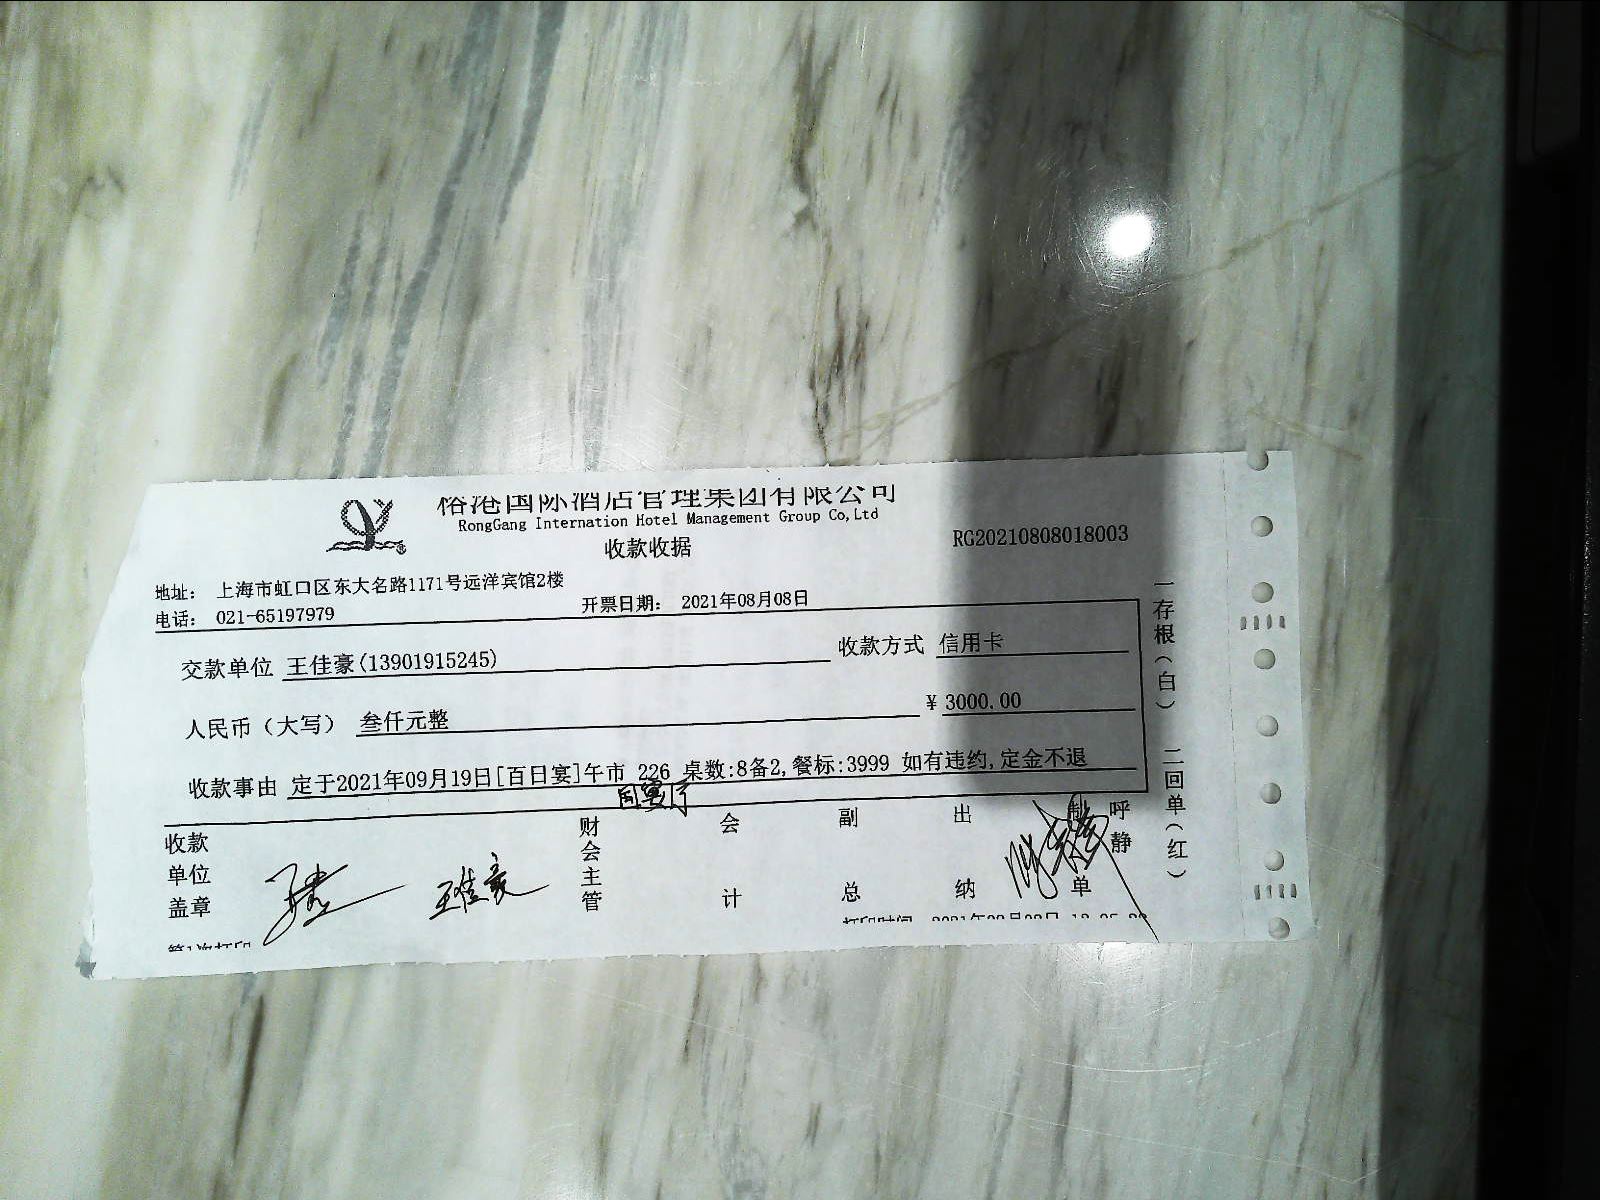 裕港国际酒店管理集团有限公司
RongGang Internation Hotel Management Group Co,Ltd
收款收据
RG20210808018003
地址： 上海市虹口区东大名路1171号远洋宾馆2楼
电话： 021-65197979
开票日期： 2021年08月08日
交款单位 王佳豪(13901915245)
收款方式 信用卡
人民币（大写） 叁仟元整
¥ 3000.00
收款事由 定于2021年09月19日[百日宴]午市 226 桌数:8备2,餐标:3999 如有违约,定金不退
收款单位盖章
王佳豪
财会主管
会计
副总
出纳
制单
呼静
一存根（白） 二回单（红）
第1次打印
打印时间